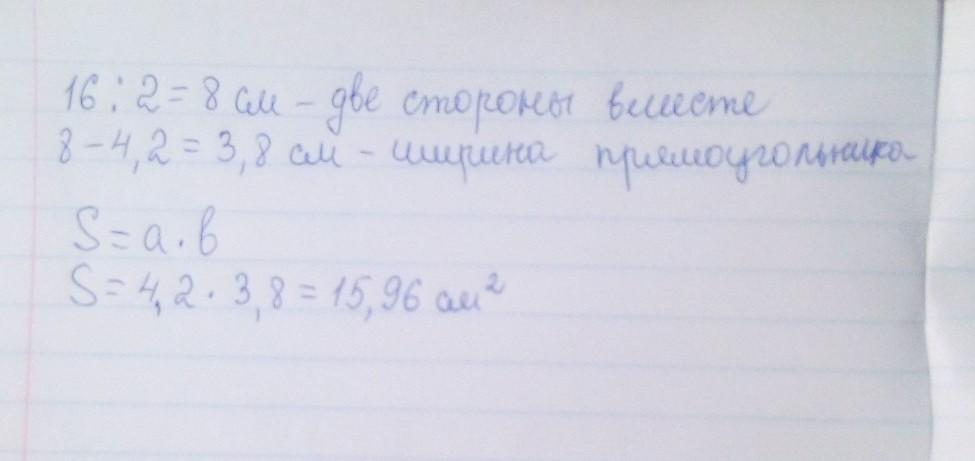 16 : 2 = 8 см – две стороны вместе
8 – 4,2 = 3,8 см – ширина прямоугольника
S = a · b
S = 4,2 · 3,8 = 15,96 см²